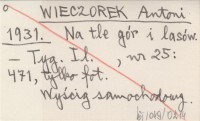 o
WIECZOREK Antoni
1931. Na tle gór i lasów.
– Tyg. Il. , nr 25:
471, tylko fot.
Wyścig samochodowy.